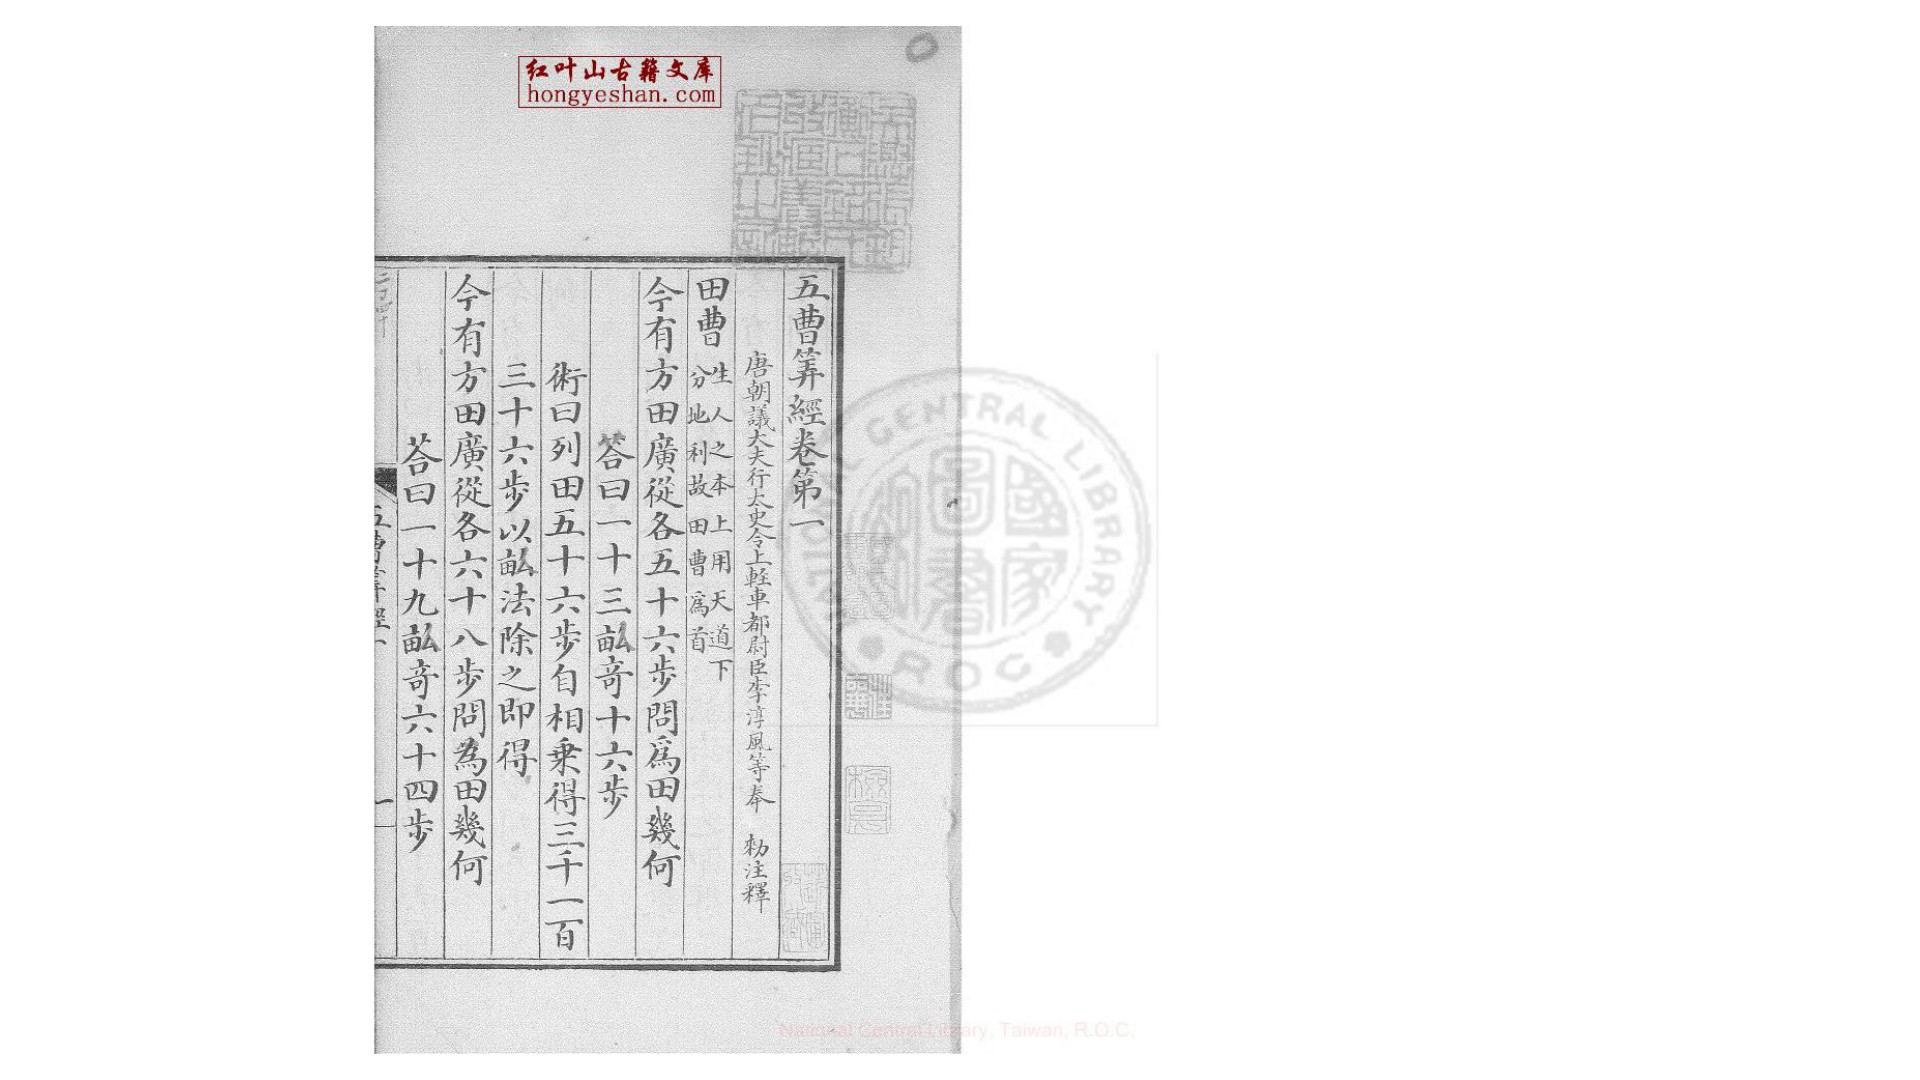 红叶山古籍文库
hongyeshan.com
五曹筭經卷第一
唐朝議大夫行太史令上輕車都尉臣李淳風等奉 勑注釋
田曹 生人之本上用天道下
分地利故田曹爲首
今有方田廣從各五十六步問爲田幾何
荅曰一十三畝竒十六步
術曰列田五十六步自相乗得三千一百
三十六步以畝法除之即得
今有方田廣從各六十八步問為田幾何
荅曰一十九畝竒六十四步
NATIONAL CENTRAL LIBRARY
ROC
國家圖書
National Central Library, Taiwan, R.O.C.